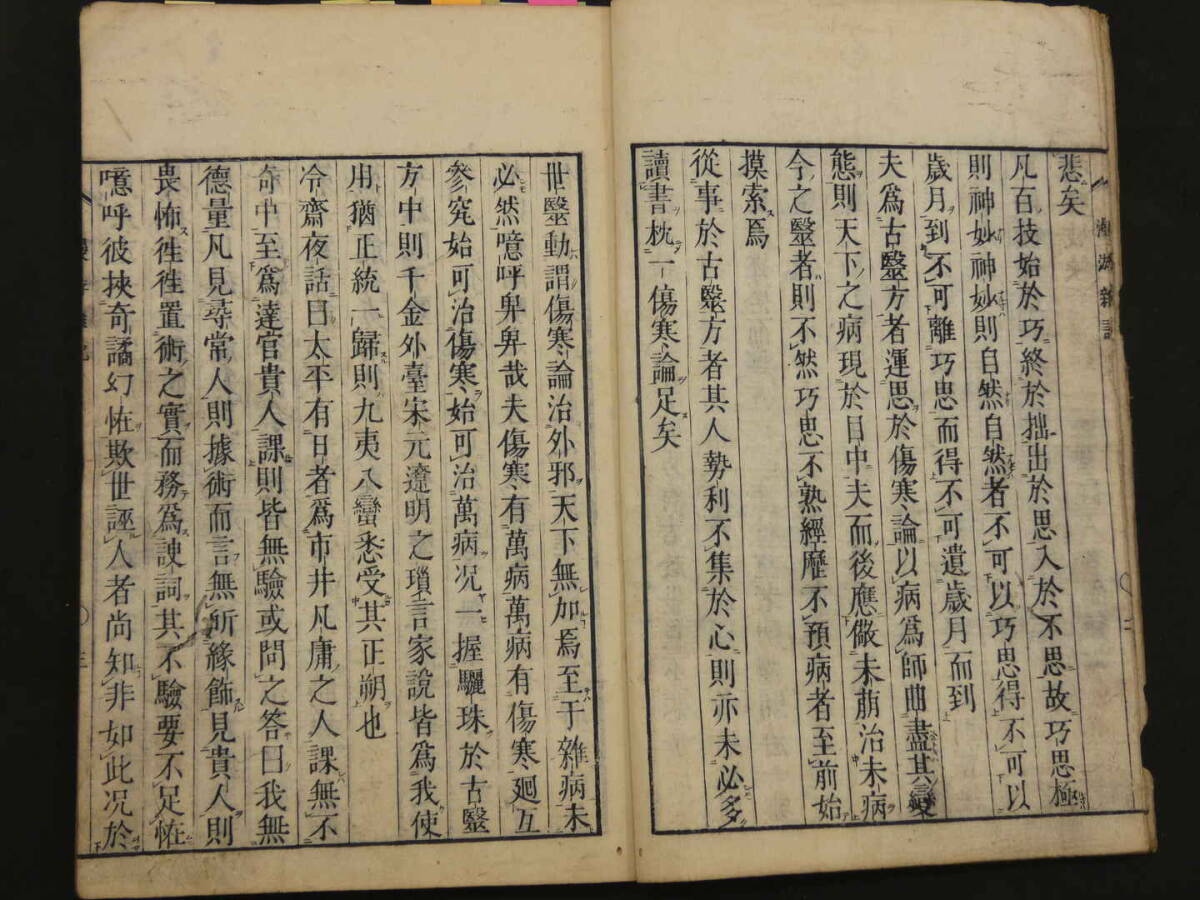 悲矣
凡百技始於巧終於拙出於思入於不思故巧思極
則神妙神妙則自然自然者不可以巧思得不可以
歲月到不可離巧思而得不可遺歲月而到
夫爲古毉方者運思於傷寒論以病爲師曲盡其變
態則天下之病現於目中夫而後應倣未萠治未病
今之毉者則不然巧思不熟經歷不預病者至前始
摸索焉
從事於古毉方者其人勢利不集於心則亦未必多
讀書枕一傷寒論足矣
世毉動謂傷寒論治外邪天下無加焉至于雜病未
必然噫呼卑卑哉夫傷寒有萬病萬病有傷寒廻互
參究始可治傷寒始可治萬病况一握驪珠於古毉
方中則千金外臺宋元遼明之瑣言家說皆爲我使
用猶正統一歸則九夷八蠻悉受其正朔也
冷齋夜話曰太平有日者爲市井凡庸之人課無不
奇中至爲達官貴人課則皆無驗或問之答曰我無
德量凡見尋常人則據術而言無所緣飾見貴人則
畏怖徃徃置術之實而務爲諛詞其不驗要不足恠
噫呼彼挾奇譎幻恠欺世誣人者尚知非如此况於
三